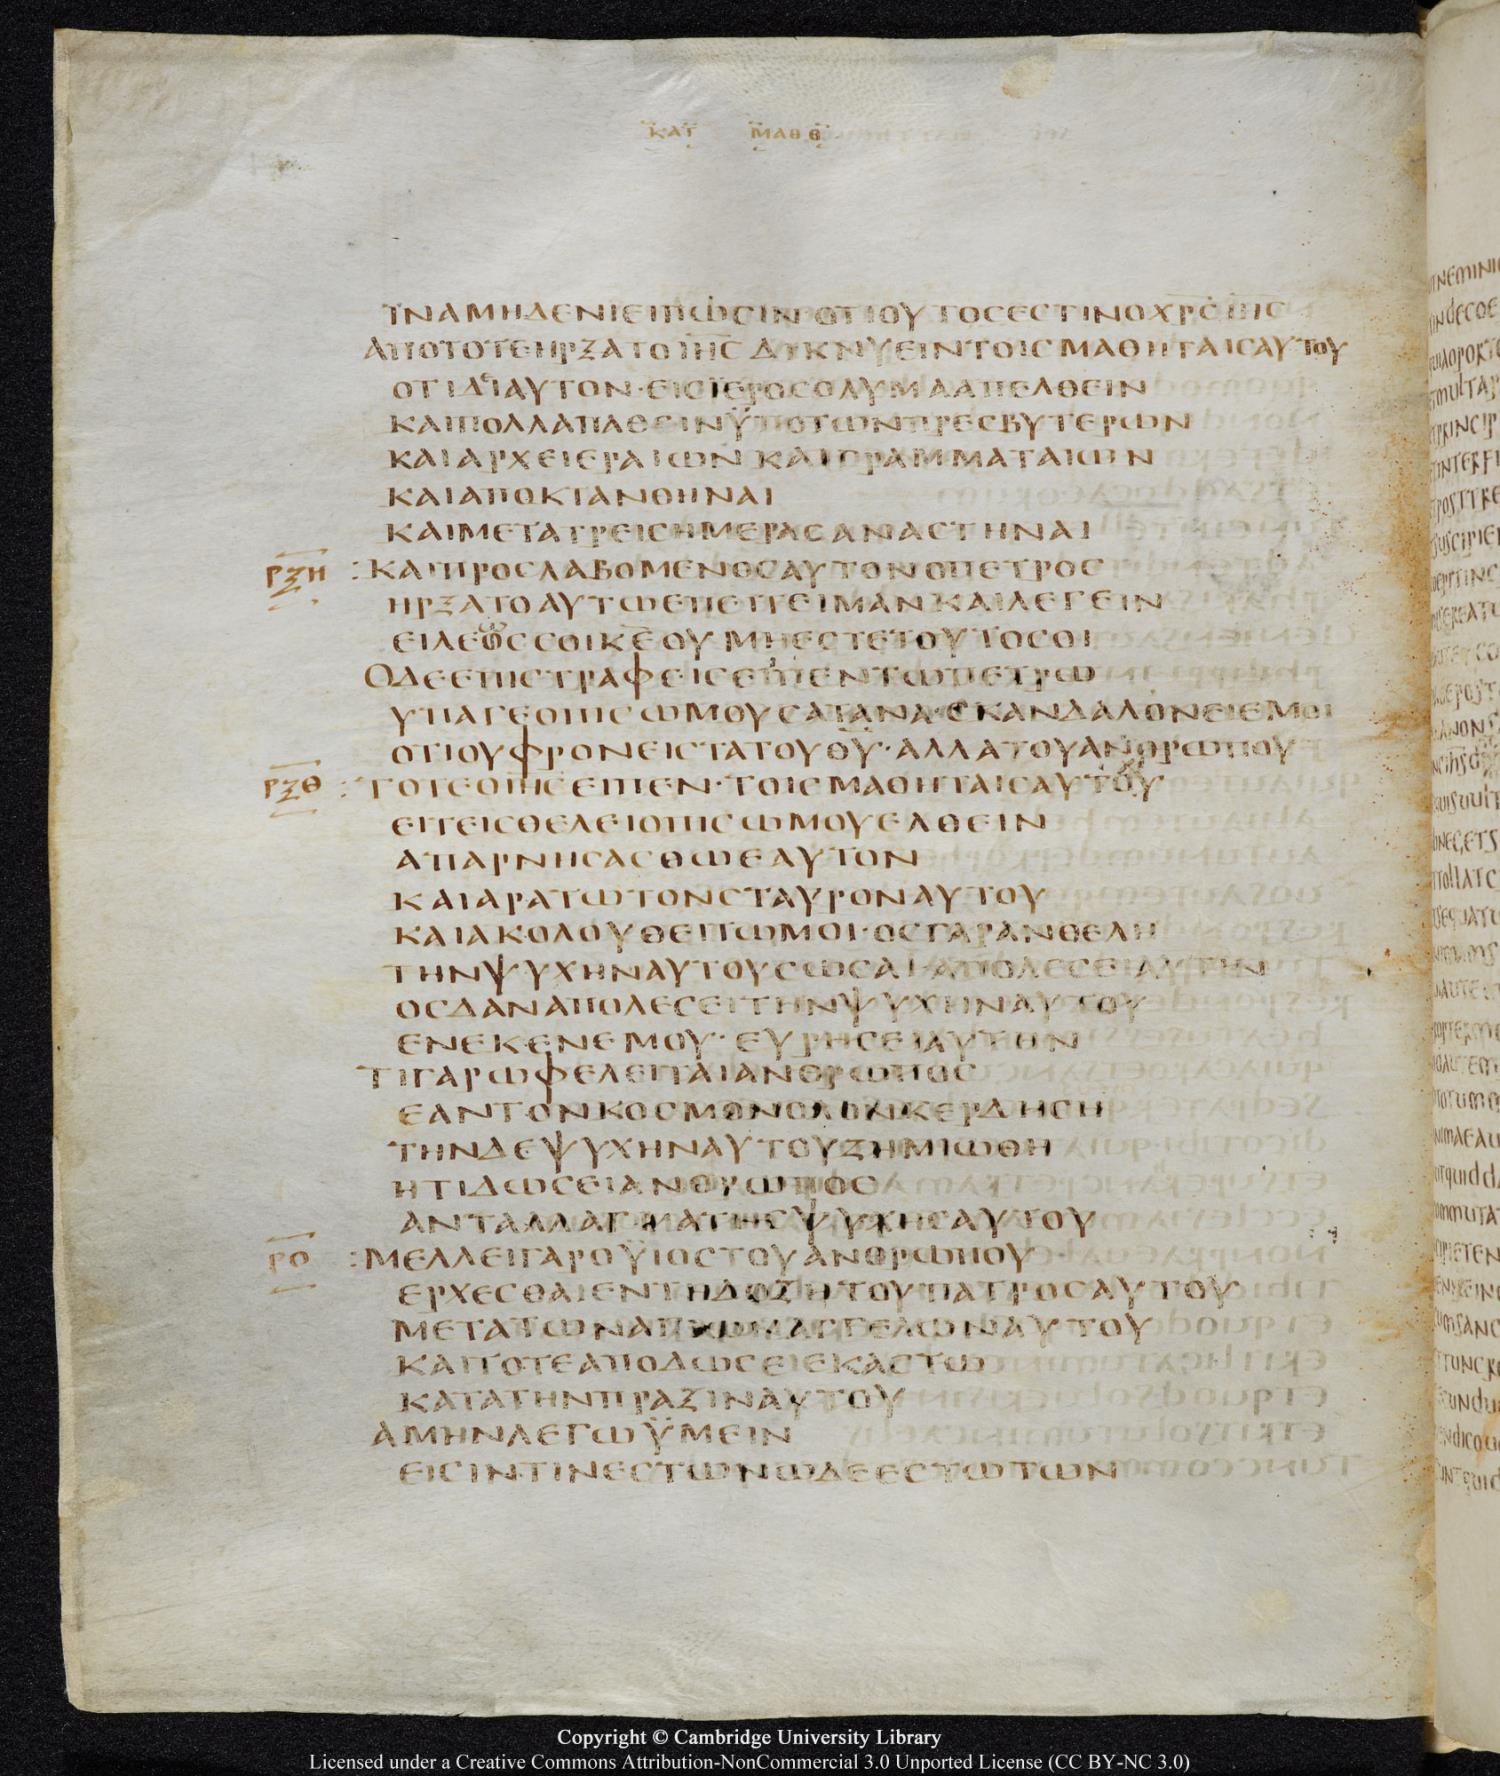 ΚΑΤ ΜΑΘΘ
ΪΝΑΜΗΔΕΝΙΕΙΠΩСΙΝΟΤΙΟΥΤΟСΕСΤΙΝΟΧΡСΙΗС
ΑΠΟΤΟΤΕΗΡΞΑΤΟΙΗСΔΙΚΝΥΕΙΝΤΟΙСΜΑΘΗΤΑΙСΑΥΤΟΥ
ΟΤΙΔΙΑΥΤΟΝ·ΕΙСΪΕΡΟСΟΛΥΜΑΑΠΕΛΘΕΙΝ
ΚΑΙΠΟΛΛΑΠΑΘΕΙΝΫΠΟΤΩΝΠΡΕСΒΥΤΕΡΩΝ
ΚΑΙΑΡΧΕΙΕΡΑΙΩΝΚΑΙΓΡΑΜΜΑΤΑΙΩΝ
ΚΑΙΑΠΟΚΤΑΝΘΗΝΑΙ
ΚΑΙΜΕΤΑΤΡΕΙСΗΜΕΡΑСΑΝΑСΤΗΝΑΙ
ΡΞΗ :ΚΑΙΠΡΟСΛΑΒΟΜΕΝΟСΑΥΤΟΝΟΠΕΤΡΟС
ΗΡΞΑΤΟΑΥΤΩΕΠΕΙΤΕΙΜΑΝΚΑΙΛΕΓΕΙΝ
ΕΙΛΕΟССΟΙΚΕΟΥΜΗΕСΤΕΤΟΥΤΟСΟΙ
ΟΔΕΕΠΙСΤΡΑΦΕΙСΕΙΠΕΝΤΩΠΕΤΡΩ
ΥΠΑΓΕΟΠΙСΩΜΟΥСΑΤΑΝΑ·СΚΑΝΔΑΛΟΝΕΙΕΜΟΙ
ΟΤΙΟΥΦΡΟΝΕΙСΤΑΤΟΥΘΥ·ΑΛΛΑΤΟΥΑΝΘΡΩΠΟΥ
ΡΞΘ :ΤΟΤΕΟΙΗСΕΙΠΕΝ·ΤΟΙСΜΑΘΗΤΑΙСΑΥΤΟΥ
ΕΙΤΕΙСΘΕΛΕΙΟΠΙСΩΜΟΥΕΛΘΕΙΝ
ΑΠΑΡΝΗСΑСΘΩΕΑΥΤΟΝ
ΚΑΙΑΡΑΤΩΤΟΝСΤΑΥΡΟΝΑΥΤΟΥ
ΚΑΙΑΚΟΛΟΥΘΕΙΤΩΜΟΙ·ΟСΓΑΡΑΝΘΕΛΗ
ΤΗΝΨΥΧΗΝΑΥΤΟΥСΩСΑΙ·ΑΠΟΛΕСΕΙΑΥΤΗΝ
ΟСΔΑΝΑΠΟΛΕСΕΙΤΗΝΨΥΧΗΝΑΥΤΟΥ
ΕΝΕΚΕΝΕΜΟΥ·ΕΥΡΗСΕΙΑΥΤΗΝ
ΤΙΓΑΡΩΦΕΛΕΙΤΑΙΑΝΘΡΩΠΟС
ΕΑΝΤΟΝΚΟСΜΟΝΟΛΟΝΚΕΡΔΗСΗ
ΤΗΝΔΕΨΥΧΗΝΑΥΤΟΥΖΗΜΙΩΘΗ
ΗΤΙΔΩСΕΙΑΝΘΡΩΠΟС
ΑΝΤΑΛΛΑΓΜΑΤΗСΨΥΧΗСΑΥΤΟΥ
ΡΟ :ΜΕΛΛΕΙΓΑΡΟΫΙΟСΤΟΥΑΝΘΡΩΠΟΥ
ΕΡΧΕСΘΑΙΕΝΤΗΔΟΞΗΤΟΥΠΑΤΡΟСΑΥΤΟΥ
ΜΕΤΑΤΩΝΑΓΙΩΝΑΓΓΕΛΩΝΑΥΤΟΥ
ΚΑΙΤΟΤΕΑΠΟΔΩСΕΙΕΚΑСΤΩ
ΚΑΤΑΤΗΝΠΡΑΞΙΝΑΥΤΟΥ
ΑΜΗΝΛΕΓΩΫΜΕΙΝ
ΕΙСΙΝΤΙΝΕСΤΩΝΩΔΕΕСΤΩΤΩΝ
Copyright © Cambridge University Library
Licensed under a Creative Commons Attribution-NonCommercial 3.0 Unported License (CC BY-NC 3.0)